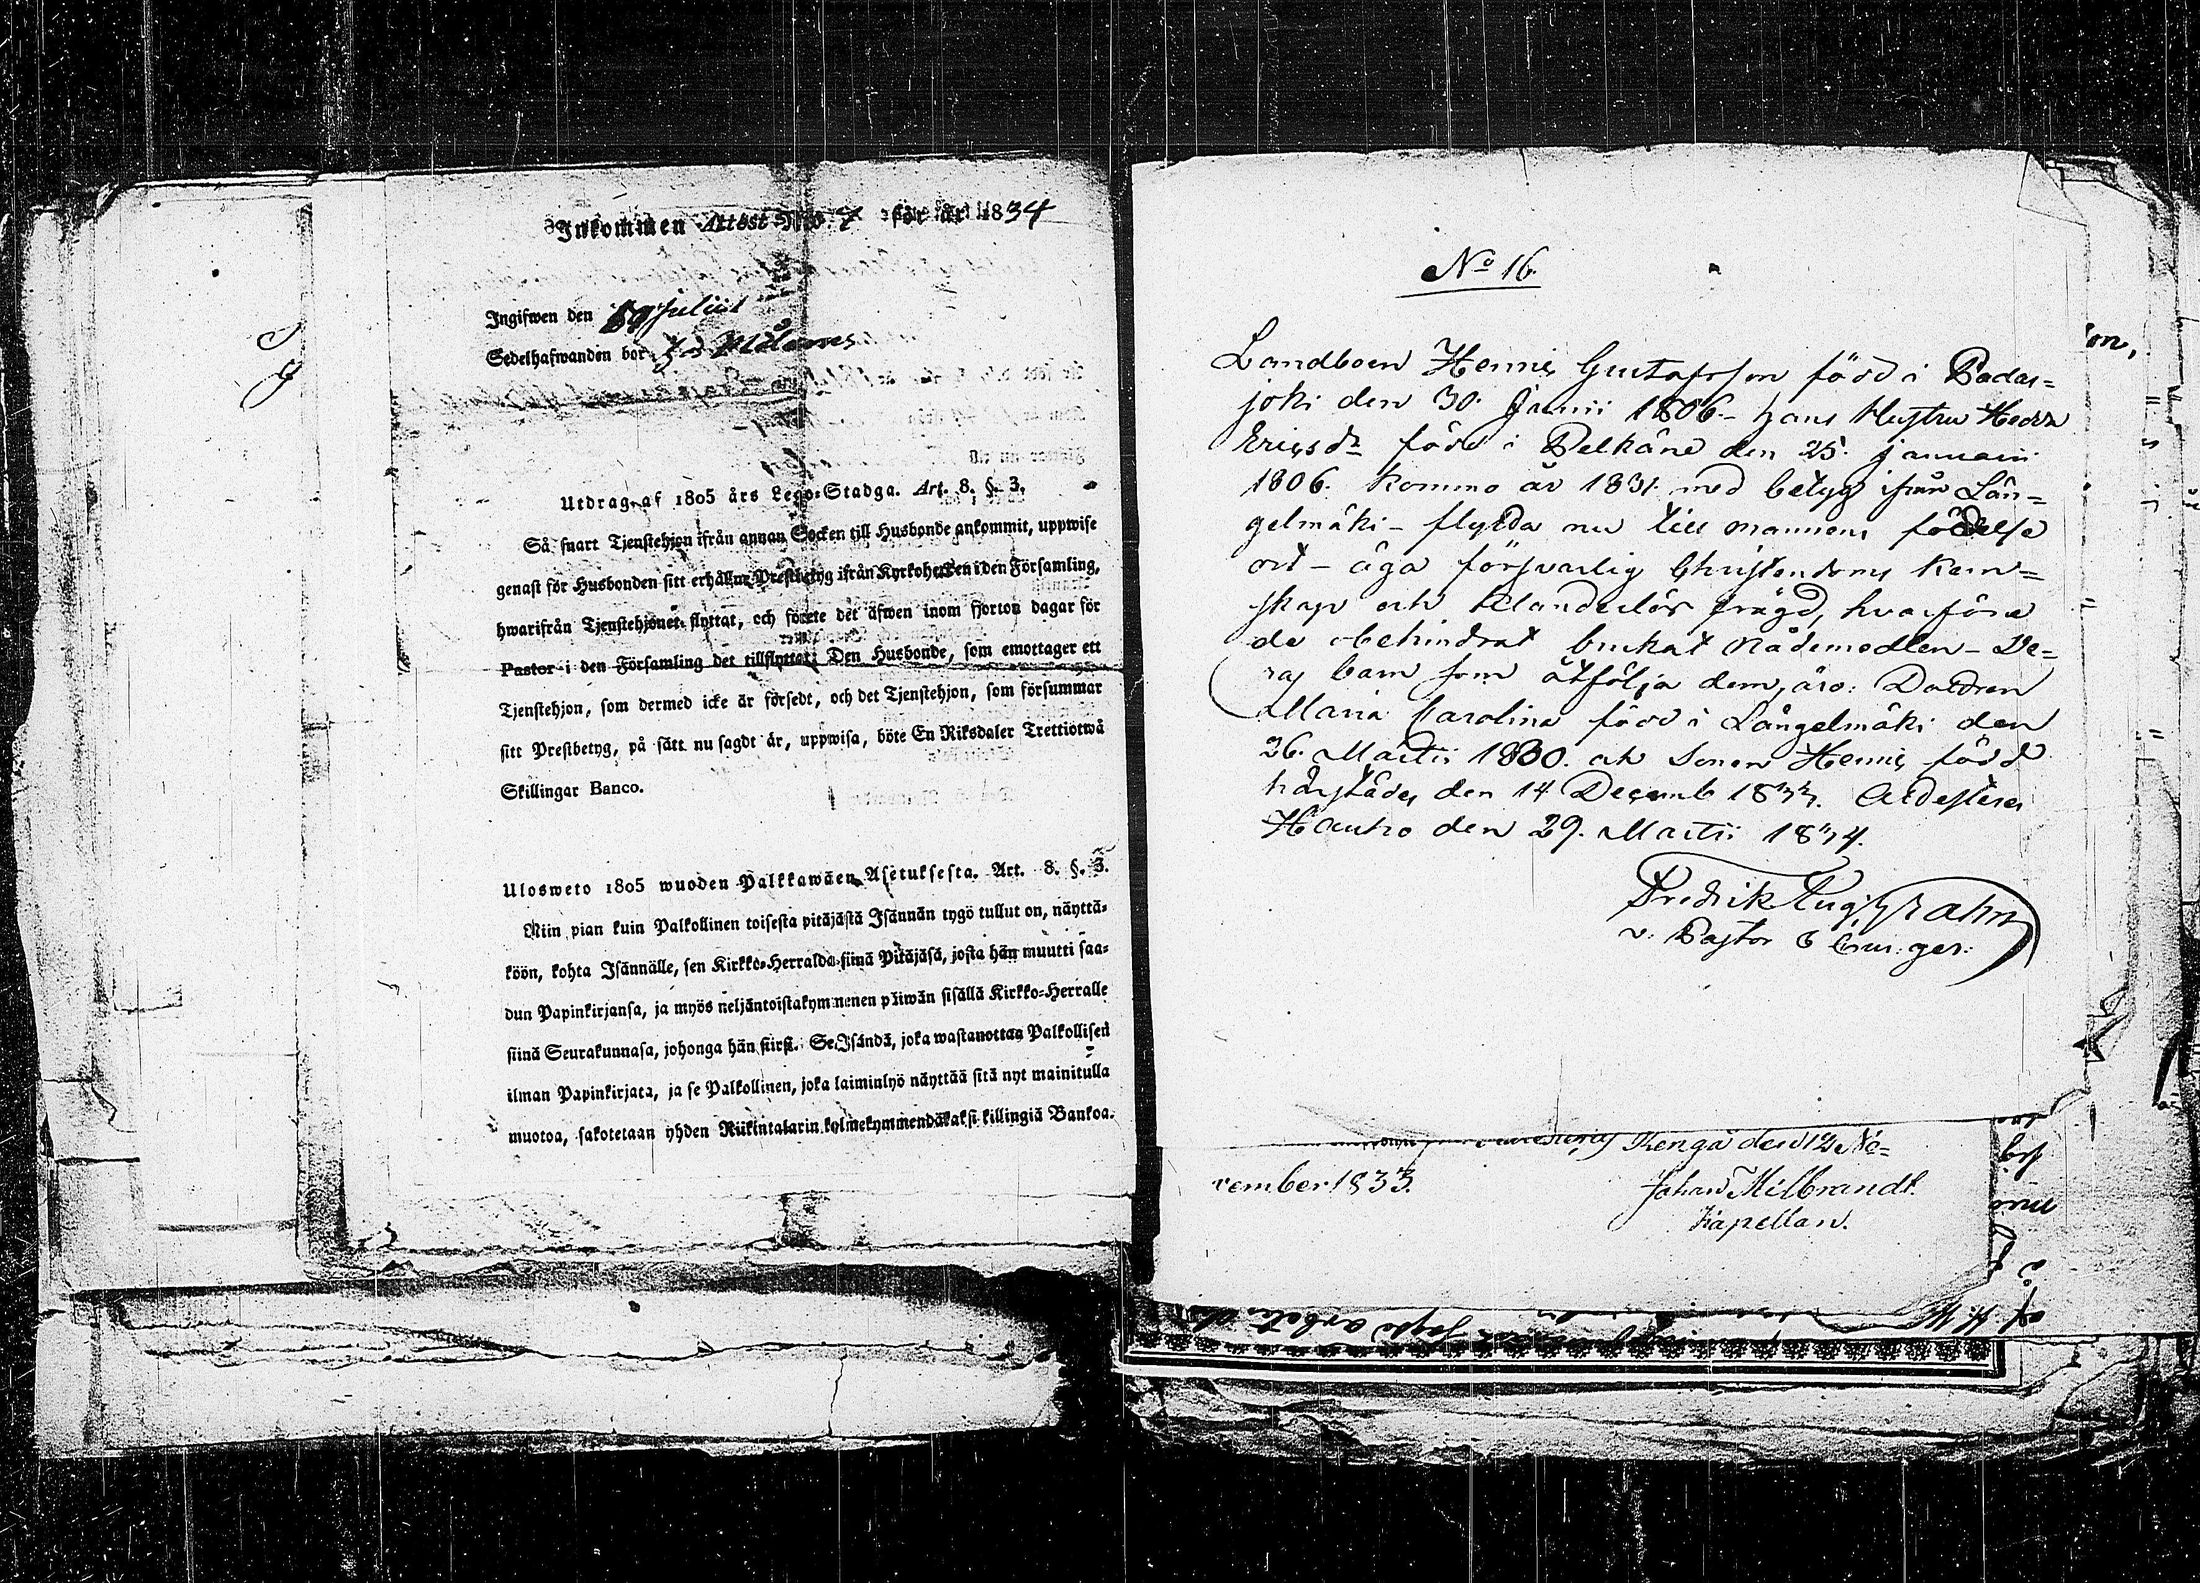 Inkommen Attest No 7 för år 1834
Ingifwen den 19 Julii
Sedelhafwanden bor
Utdrag af 1805 års Lego-Stadga. Art. 8. §. 3.
Så snart Tjenstehjon ifrån annan Socken till Husbonde ankommit, uppwise
genast för Husbonden sitt erhållne Prestbetyg ifrån Kyrkoherren i den Församling,
hwarifrån Tjenstehjonet flyttat, och förete det äfwen inom fjorton dagar för
Pastor i den Församling det tillflyttat; Den Husbonde, som emottager ett
Tjenstehjon, som dermed icke är försedt, och det Tjenstehjon, som försummar
sitt Prestbetyg, på sätt nu sagdt är, uppwisa, böte En Riksdaler Trettiotwå
Skillingar Banco.
Ulosweto 1805 wuoden Palkkawäen Asetuksesta. Art. 8. §. 3.
Niin pian kuin Palkollinen toisesta pitäjästä Isännän tygö tullut on, näyttä-
köön, kohta Isännälle, sen Kirkko-Herralda siinä Pitäjäsä, josta hän muutti saa-
dun Papinkirjansa, ja myös neljäntoistakymmenen päiwän sisällä Kirkko-Herralle
siinä Seurakunnasa, johonga hän siirsi. Se Isändä, joka wastanottaa Palkollisen
ilman Papinkirjata, ja se Palkollinen, joka laiminlyö näyttää sitä nyt mainitulla
muotoa, sakotetaan yhden Riikintalarin kolmekymmendäkaksi killingiä Bankoa.
No 16.
Landboen Henric Gustafsson född i Padas=
joki den 30. Junii 1806 - hans Hustru Hedda
Ericsdr född i Pelkäne den 25. januarii
1806. kommo år 1831. med betyg ifrån Län=
gelmäki - flytta nu till mannens födelse
ort - äga försvarlig Christendoms kun=
skap och klanderlös frägd, hvarföre
de obehindrat brukat Nådemedlen - De=
ras barn som åtfölja dem, äro: Dottren
Maria Carolina född i Längelmäki den
26. Martii 1830. och Sonen Henric född
härstädes den 14 Decemb 1833. Attesterar
Hauho den 29. Martii 1834.
Fredrik Aug. Grahn
v: Pastor
Kenga den 12 No=
vember 1833.
Johan Milbrandt.
Kapellan.
on,